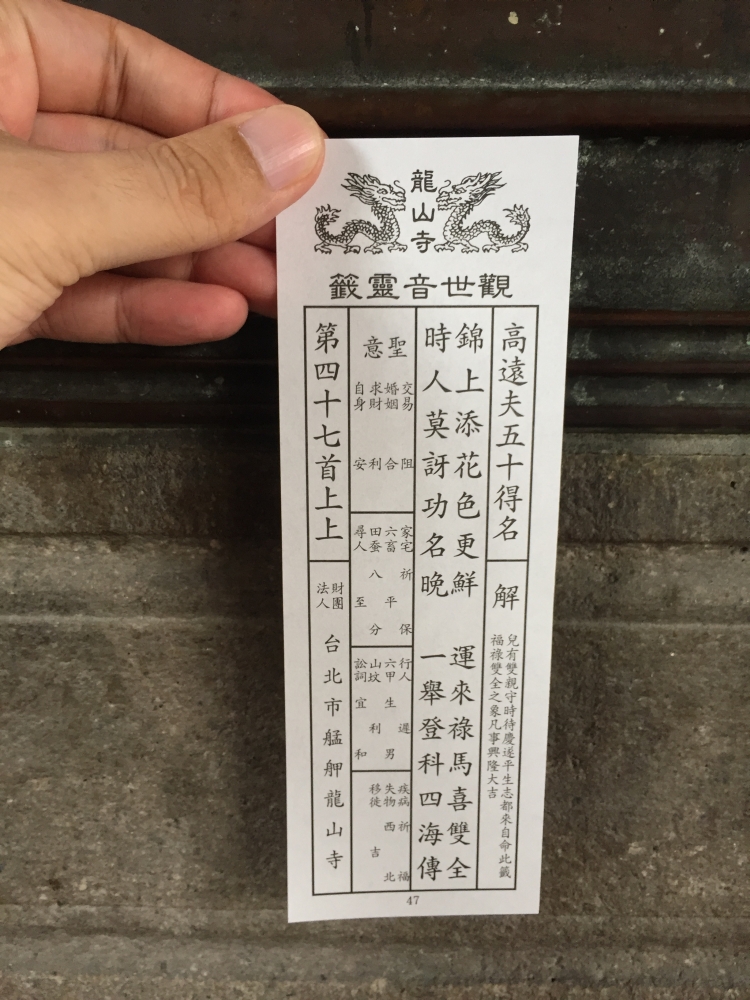 龍山寺
觀世音靈籤
高遠夫五十得名
解
兒有雙親守時待慶遂平生志都來自命此籤
福祿雙全之象凡事興隆大吉
錦上添花色更鮮 運來祿馬喜雙全
時人莫訝功名晚 一舉登科四海傳
聖意
交易 阻
婚姻 合
求財 利
自身 安
家宅 祈保
六畜 平
田蚕 八分
尋人 至
行人 遲
六甲 生男
山坟 利
訟詞 宜和
疾病 祈福
失物 西北
移徙 吉
第四十七首上上
財團
法人
台北市艋舺龍山寺
47